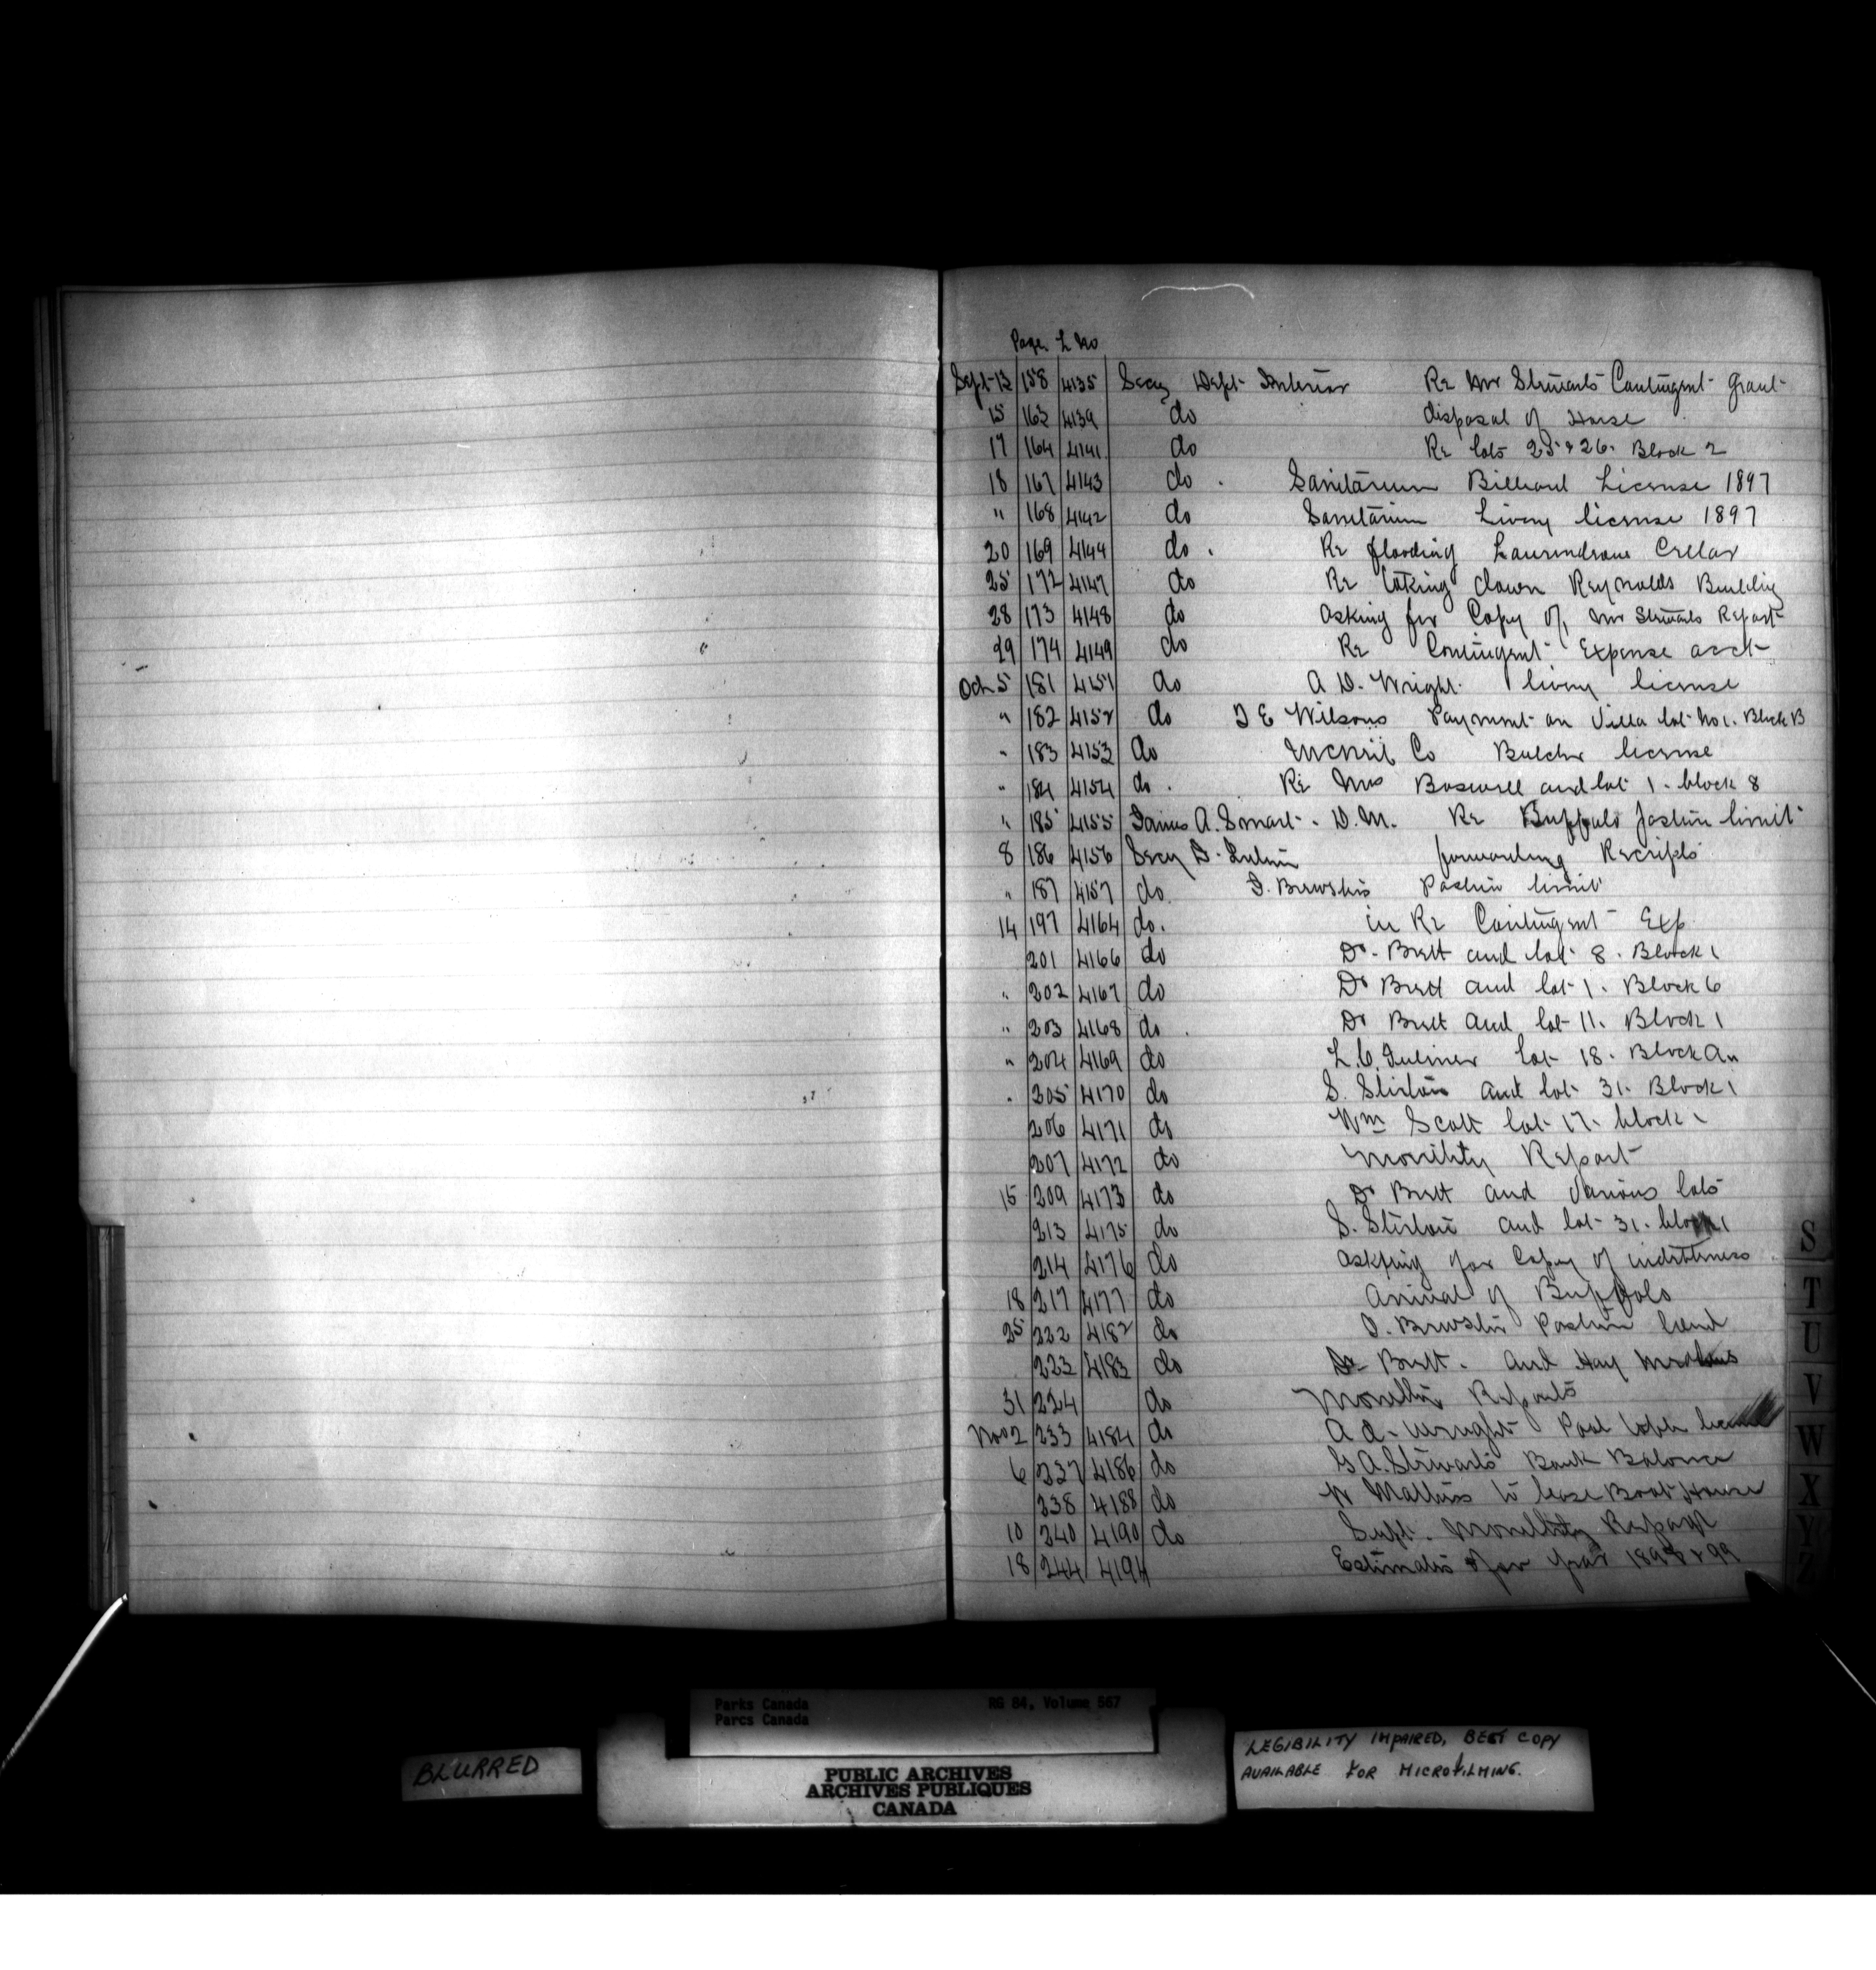 Page L No
Sept 13 158 4135 Secy Dept Interior Re Mr Stewarts Contingent grant
15 163 4139 do disposal of Horse
17 164 4141 do Re lots 25 & 26. Block 2
18 167 4143 do . Sanitarium Billiard License 1897
" 168 4142 do Sanitarium Livery license 1897
20 169 4144 do . Re flooding Cellar
25 172 4147 do Re taking down Reynolds Building
28 173 4148 do asking for Copy of Mr Stewarts Report
29 174 4149 do Re Contingent Expense acct
Oct 5 181 4151 do A D. Wright. livery license
" 182 4152 do T E Wilsons Payment on Villa lot No 1. Block B
" 183 4153 do McNeil Co Butcher license
" 184 4154 do . Re Mrs Boswell and lot 1. block 8
" 185 4155 James A. Smart. D.M. Re Buffalo Pasture limit
8 186 4156 Secy D. Interior forwarding Receipts
" 187 4157 do. J. Brewsters Pasture limit
14 197 4164 do. in Re Contingent Exp
201 4166 do Dr. Brett and lot 8. Block 1
" 202 4167 do Dr Brett and lot 1. Block 6
" 203 4168 do . Dr Brett and lot 11. Block 1
" 204 4169 do L.C. Fulmer lot 18. Block A
" 205 4170 do S. and lot 31. Block 1
206 4171 do Wm Scott lot 17. block 1
207 4172 do Monthly Report
15 209 4173 do Dr Brett and various lots
213 4175 do S. and lot 31. block 1
214 4176 do asking for Copy of
18 217 4177 do Arrival of Buffalo
25 222 4182 do J. Brewster Pasture land
223 4183 do Dr Brett. and Hay Meadows
31 224 do Monthly Reports
Nov 2 233 4184 do A D. Wright Pool table license
6 237 4186 do G A. Stewarts Bank Balance
238 4188 do W Mathers to lease Boat House
10 240 4190 do Supt. Monthly Report
18 244 4194 Estimates for year 1898 & 99
S
T
U
V
W
X
Y
Z
Parks Canada RG 84, Volume 567
Parcs Canada
BLURRED
PUBLIC ARCHIVES
ARCHIVES PUBLIQUES
CANADA
LEGIBILITY IMPAIRED, BEST COPY
AVAILABLE FOR MICROFILMING.